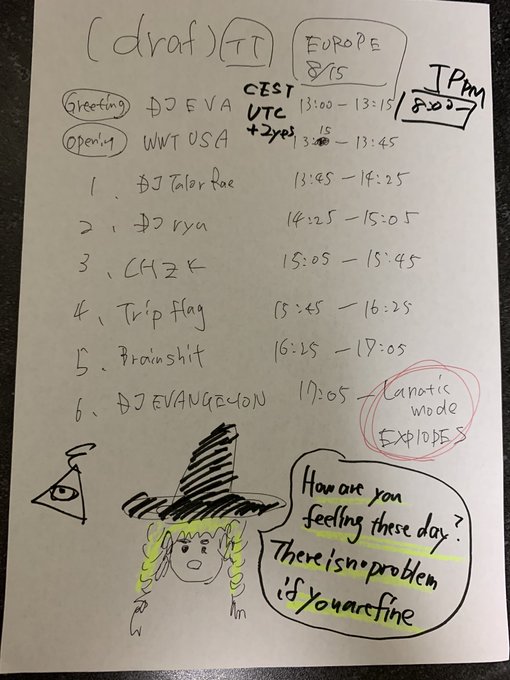 (draf) TT
EUROPE
8/15
JP PM
8:00-
Greeting DJ EVA 13:00 - 13:15
CEST
UTC
+2yes
Opening WWT USA 13:15 - 13:45
1. DJ Talor Rae 13:45 - 14:25
2. DJ ryu 14:25 - 15:05
3. CHZK 15:05 - 15:45
4. Trip flag 15:45 - 16:25
5. Brainshit 16:25 - 17:05
6. DJ EVANGELION 17:05 - Lunatic
mode
EXPLODES
How are you
feeling these day?
There is no problem
if you are fine